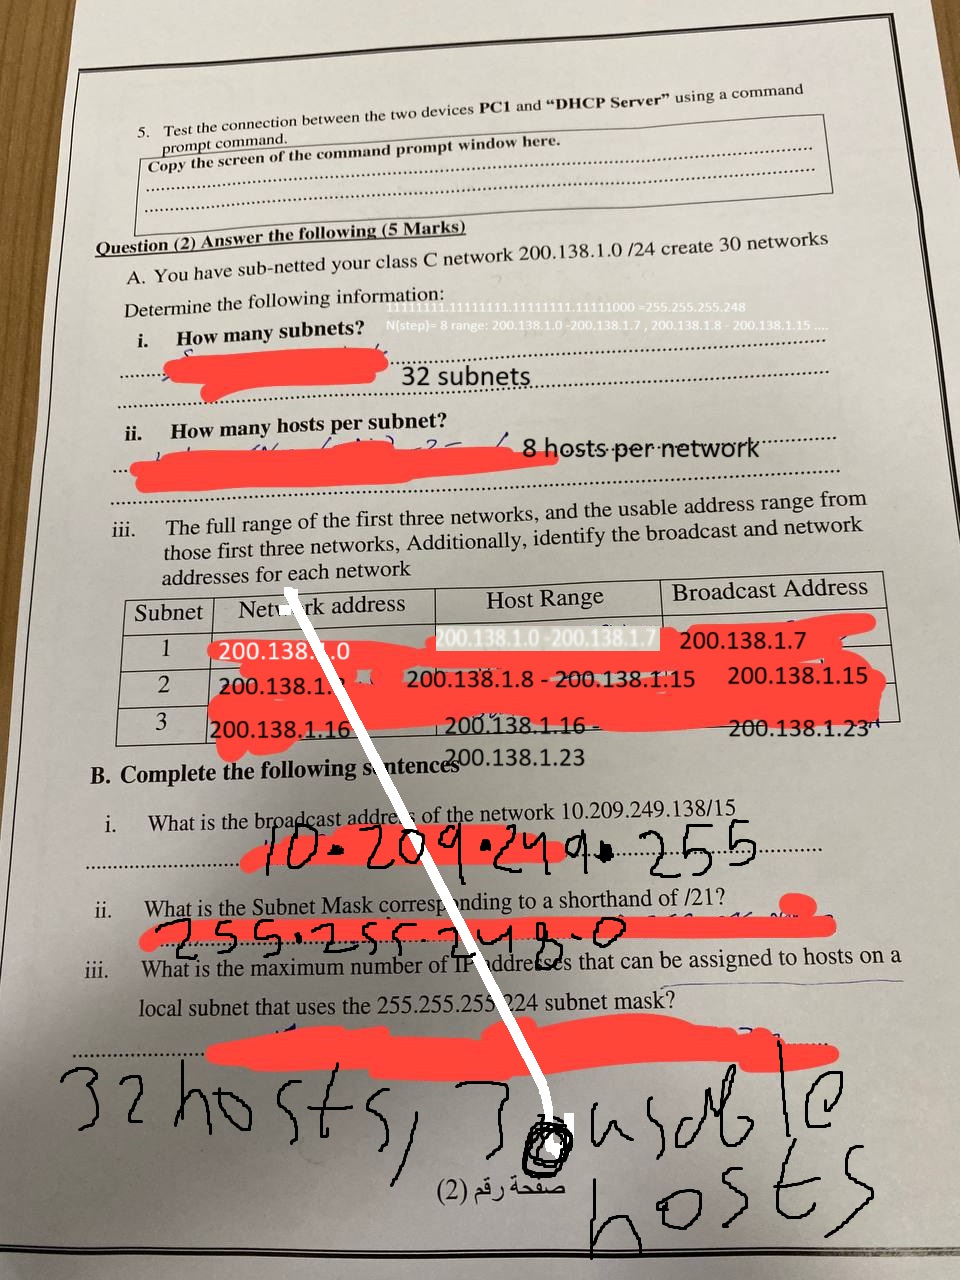 5. Test the connection between the two devices PC1 and “DHCP Server” using a command
prompt command.
Copy the screen of the command prompt window here.
Question (2) Answer the following (5 Marks)
A. You have sub-netted your class C network 200.138.1.0 /24 create 30 networks
Determine the following information:
11111111.11111111.11111111.11111000 =255.255.255.248
i. How many subnets?
N(step)= 8 range: 200.138.1.0 -200.138.1.7 , 200.138.1.8 - 200.138.1.15 ....
32 subnets
ii. How many hosts per subnet?
8 hosts per network
iii. The full range of the first three networks, and the usable address range from
those first three networks, Additionally, identify the broadcast and network
addresses for each network
Subnet Network address Host Range Broadcast Address
1 200.138. .0 200.138.1.0 -200.138.1.7 200.138.1.7
2 200.138.1. 200.138.1.8 - 200.138.1.15 200.138.1.15
3 200.138.1.16 200.138.1.16 - 200.138.1.23
200.138.1.23
B. Complete the following sentences
i. What is the broadcast address of the network 10.209.249.138/15
10.209.249.255
ii. What is the Subnet Mask corresponding to a shorthand of /21?
255.255.248.0
iii. What is the maximum number of IP addresses that can be assigned to hosts on a
local subnet that uses the 255.255.255.224 subnet mask?
32 hosts, 30 usable
hosts
صفحة رقم (2)